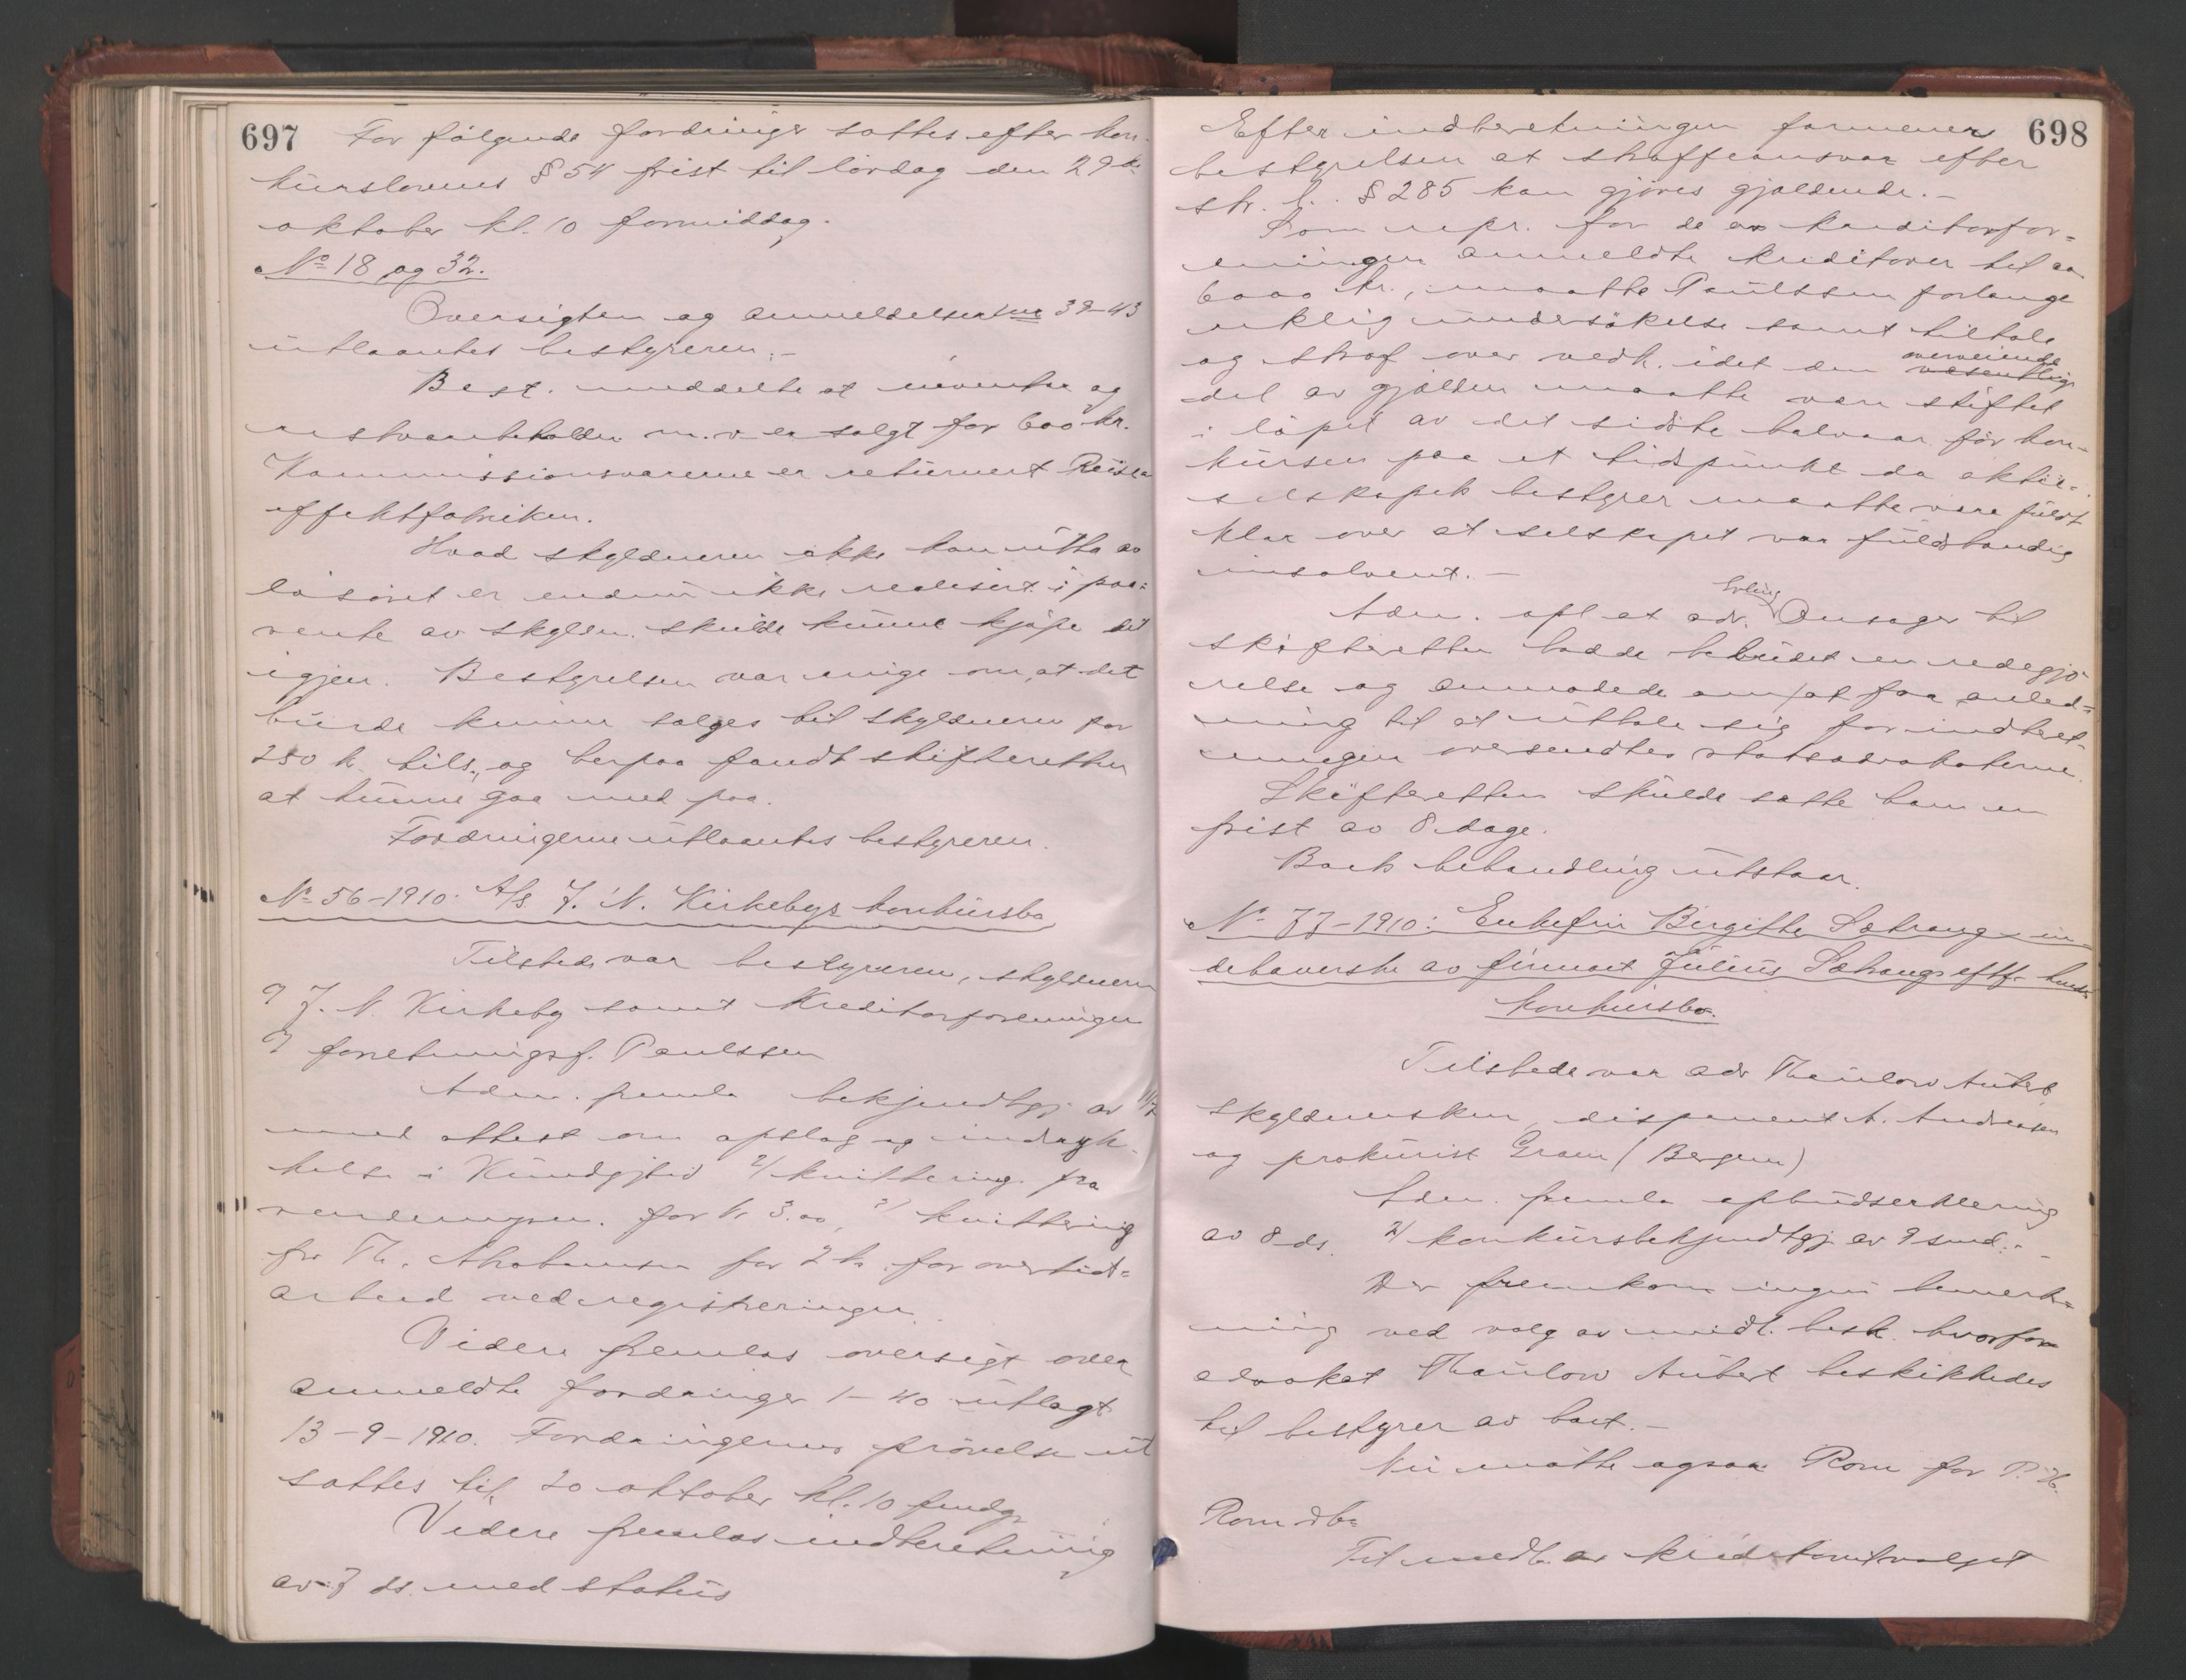 697
For følgende fordringer sattes efter kon-
kurslovens § 54 frist til lørdag den 29de
oktober kl. 10 formiddag.
No 18 og 32.
Oversigten og anmeldelserne 39-43
utlaantes bestyreren.-
Best. meddelte at inventar og
restvarebeholdn m.v er solgt for 600 kr.
Kommissionsvarerne er returnert Reise
effektfabriken.
Hvad skyldneren ikke kan utta av
løsøret er endnu ikke realisert i paa-
vente av skyldn. skulde kunne kjøpe det
igjen. Bestyrelsen var enige om, at det
burde kunne sælges til skyldneren for
250 kr tils., og herpaa fandt skifteretten
at kunne gaa med paa.
Fordringerne utlaantes bestyreren.
No 56-1910: A/S J. N. Kirkebys konkursbo
Tilstede var bestyreren, skyldneren
ved J. N. Kirkeby samt Kreditorforeningen
ved forretningsf. Paulssen
Adm. fremla bekjendtgj. av 11/7
med attest om opslag og indryk-
kelse i Kundgjtid 2/ kvittering fra
for kr 3.00, 3/ kvittering
fra Th. Abrahamsen for 2 kr. for overtids-
arbeid ved registreringen.
Videre fremlas oversigt over
anmeldte fordringer 1-40 utlagt
13-9-1910. Fordringernes prøvelse ut
sattes til 20 oktober kl. 10 fmdg.
Videre fremlas indberetning
av 7 ds. med status
698
Efter indberetningen formener
bestyrelsen at straffeansvar efter
str. l. § 285 kan gjøres gjældende.-
Som repr. for de av kreditorfor-
eningen anmeldte kreditorer til ca
6000 kr., maatte Paulssen forlange
undersøkelse samt tiltale
og straf over vedk. idet den overveiende væsentlige
del av gjælden maatte være stiftet
i løpet av det sidste halvaar før kon-
kursen paa et tidspunkt da aktie-
selskapets bestyrer maatte være fuldt
klar over at selskapet var fuldstændig
insolvent.-
Adm. opl at adv. Erling Ansager til
skifteretten hadde bebudet en redegjø-
relse og anmodede om at faa anled-
ning til at uttale sig før indberet-
ningen oversendtes statsadvokaterne.
Skifteretten skulde sætte ham en
frist av 8 dage.
Boets behandling utstaar.
No 77-1910: Enkefru Birgitte Sætrang in-
dehaverske av firmaet Julius Sætrangs eftf.
konkursbo.
Tilstede var adv Thaulow Aubert
skyldnersken, disponent A. Andresen
og prokurist Gram (Bergen)
Adm. fremla opbudserklæring
av 8 ds. 2/ konkursbekjendtgj. av 9 smd.-
Der fremkom ingen bemerk-
ning ved valg av midl. best. hvorfor
advokat Thaulow Aubert beskikkedes
til bestyrer av boet.-
Nu møtte ogsaa Rom for P. H.
Rom
Til medl. av kreditorutvalget